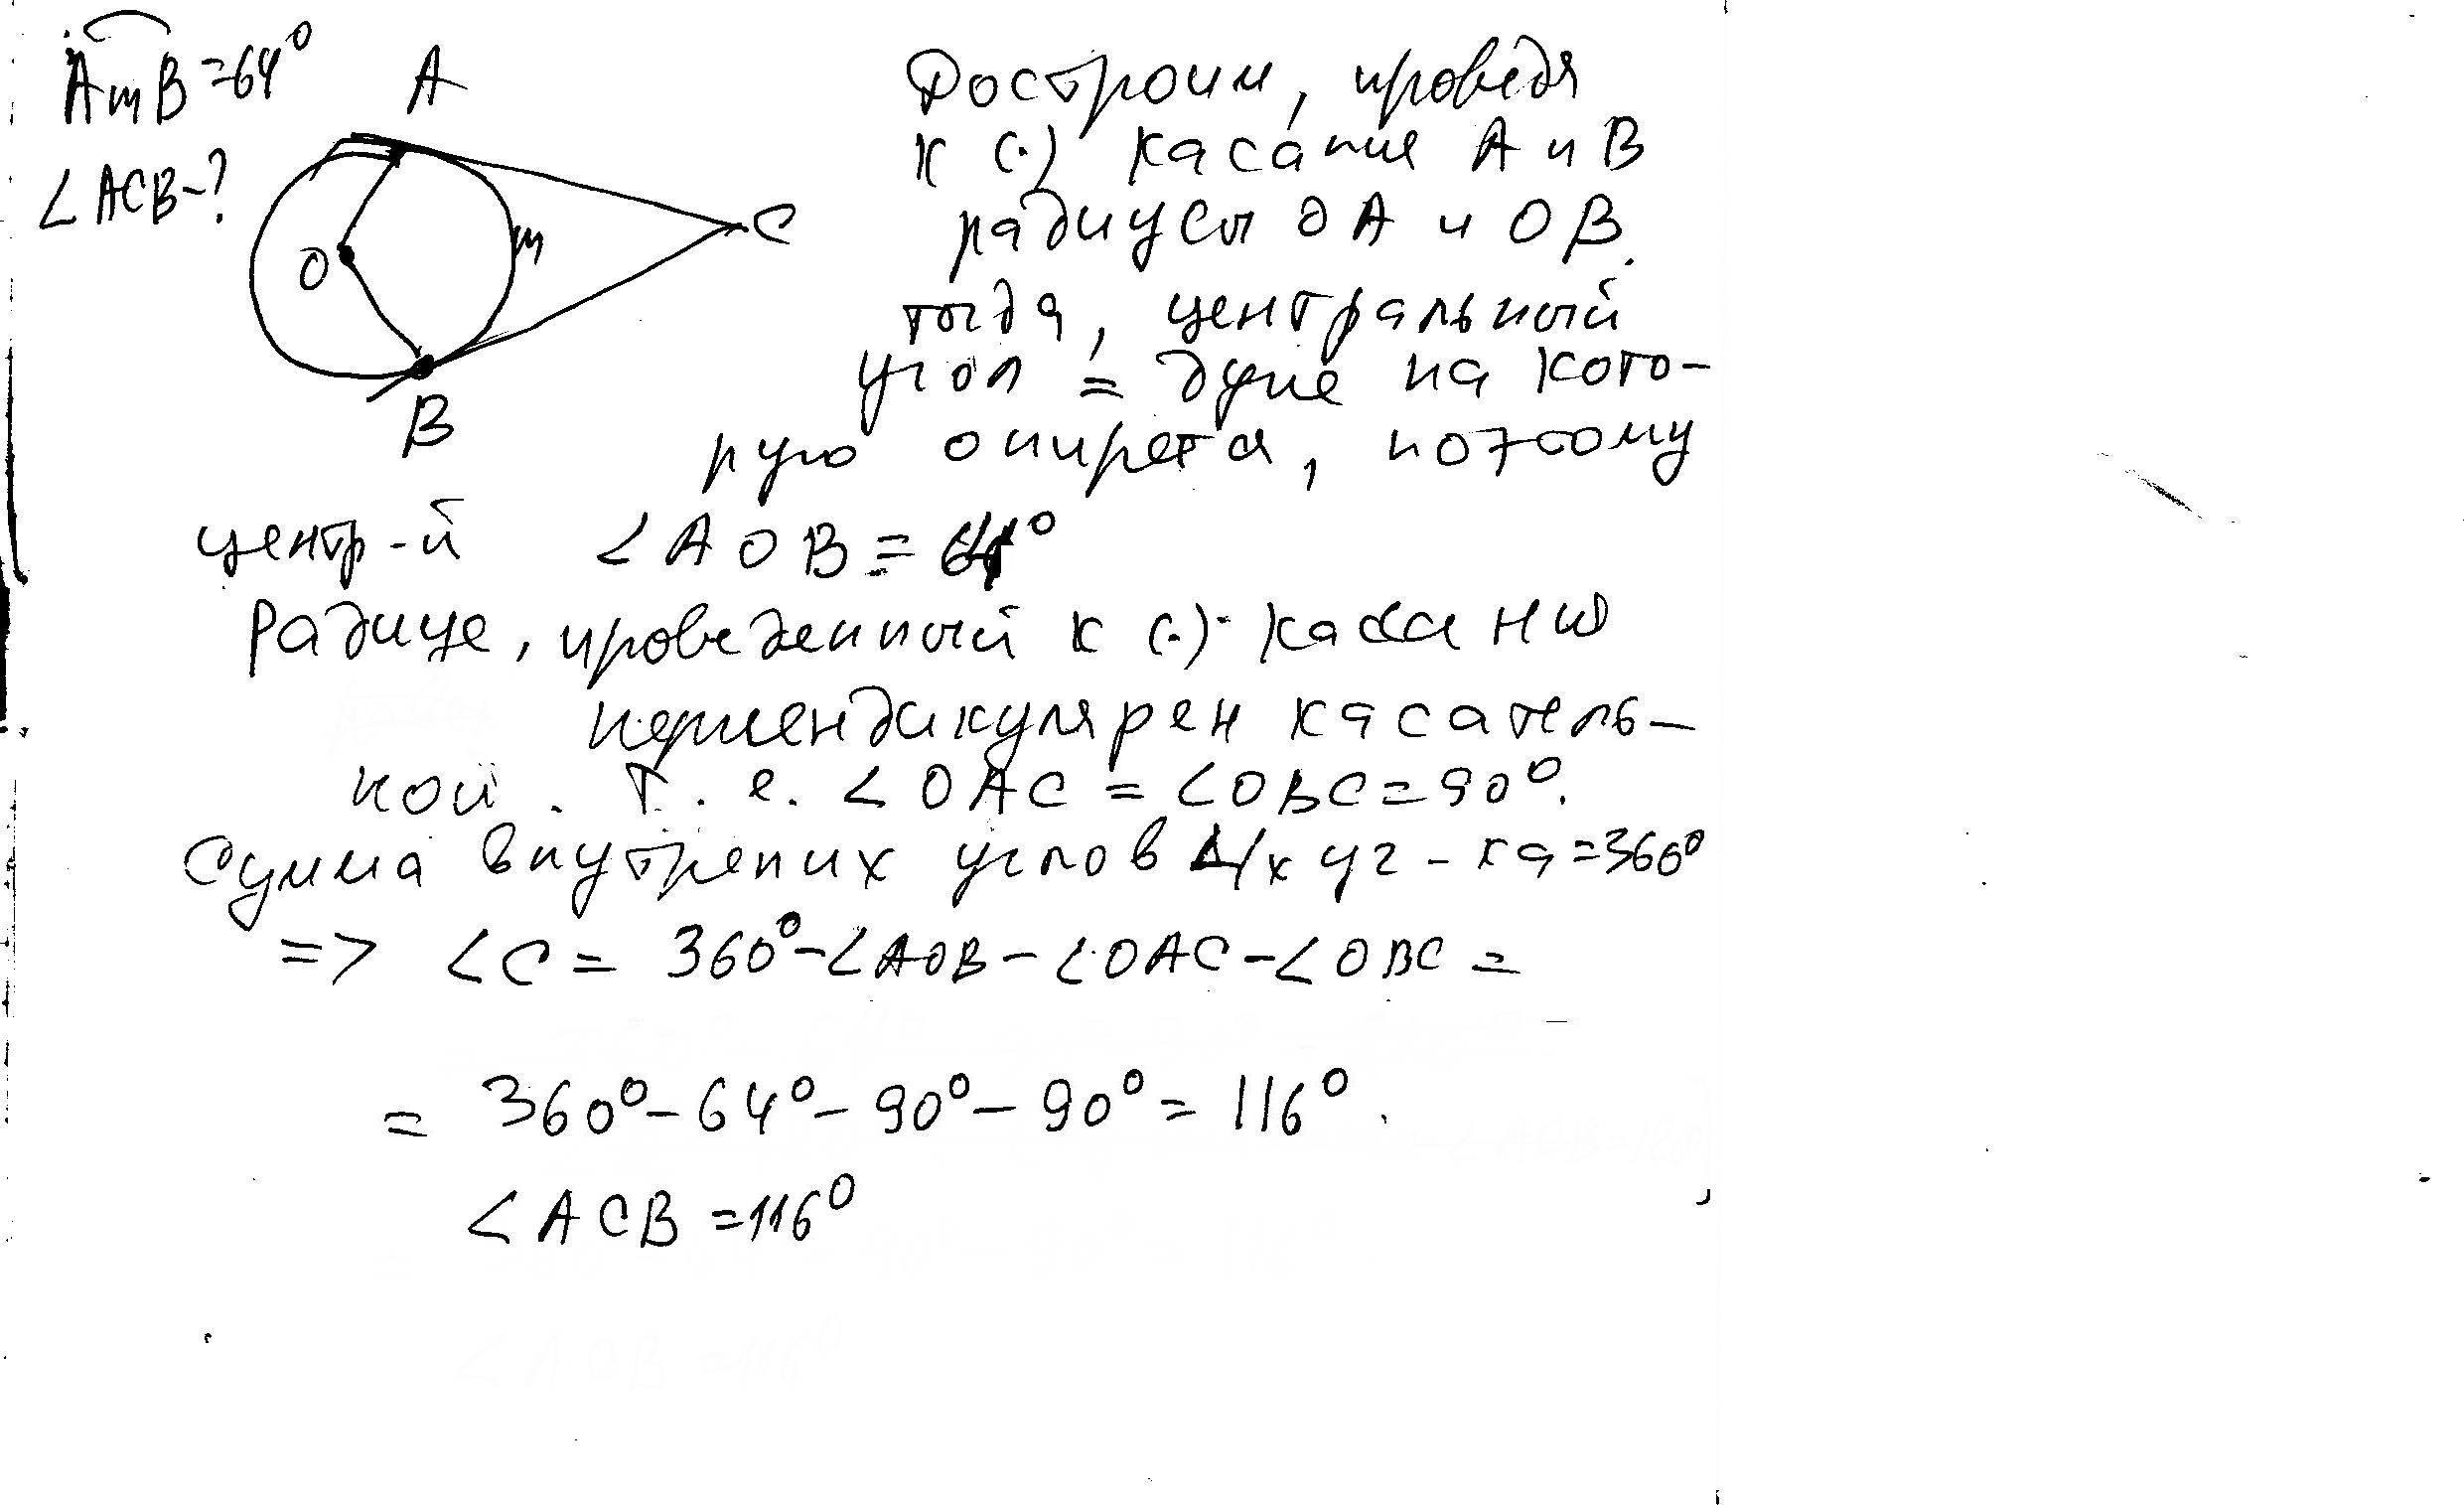 AmB = 64°
∠ACB - ?
A
O
m
C
B
Достроим, проведя
к (·) касание A и B
радиусы OA и OB.
тогда, центральный
угол = дуге на кото-
рую опирется, поэтому
центр-й ∠AOB = 64°
Радиус, проведенный к (·) касанию
перпендикулярен касатель-
ной. т.е. ∠OAC = ∠OBC = 90°.
Сумма внутрених углов 4/х уг-ка = 360°
=> ∠C = 360° - ∠AOB - ∠OAC - ∠OBC =
= 360° - 64° - 90° - 90° = 116°.
∠ACB = 116°